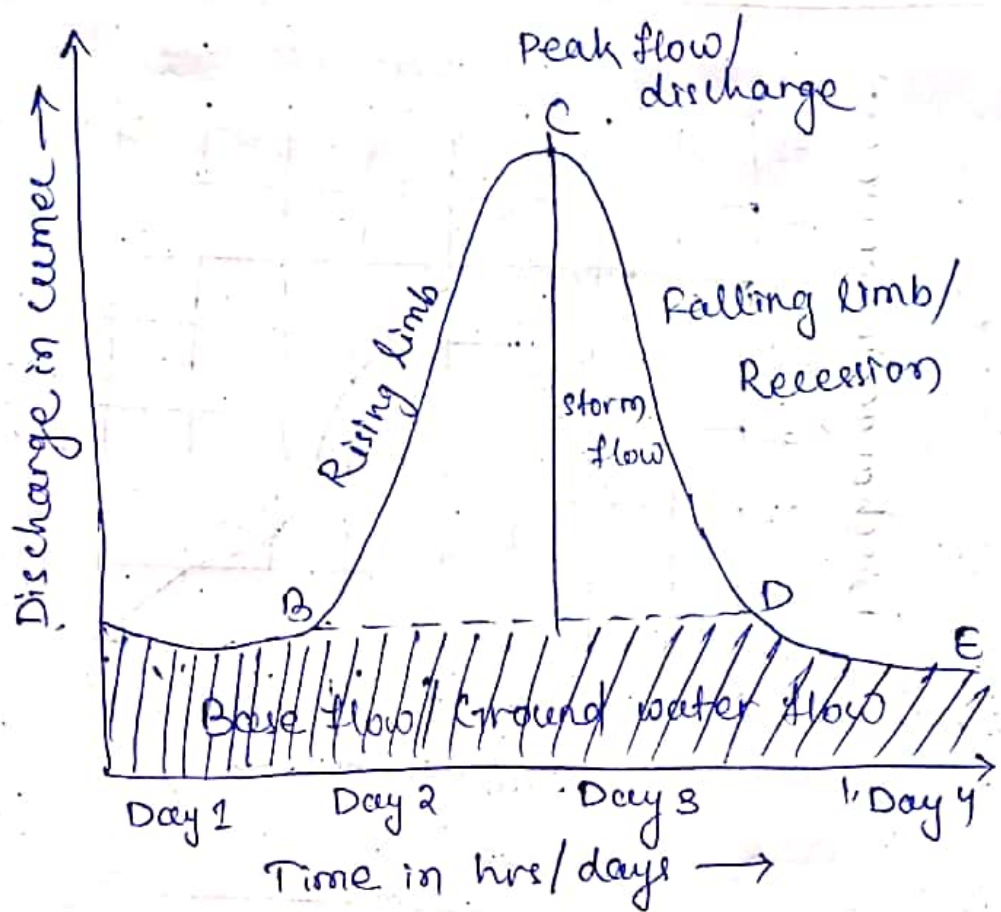 Peak flow/
discharge
C
Discharge in cumec
Rising limb
Falling limb/
Recession
storm
flow
B
D
E
Base flow/ Ground water flow
Day 1
Day 2
Day 3
Day 4
Time in hrs/days